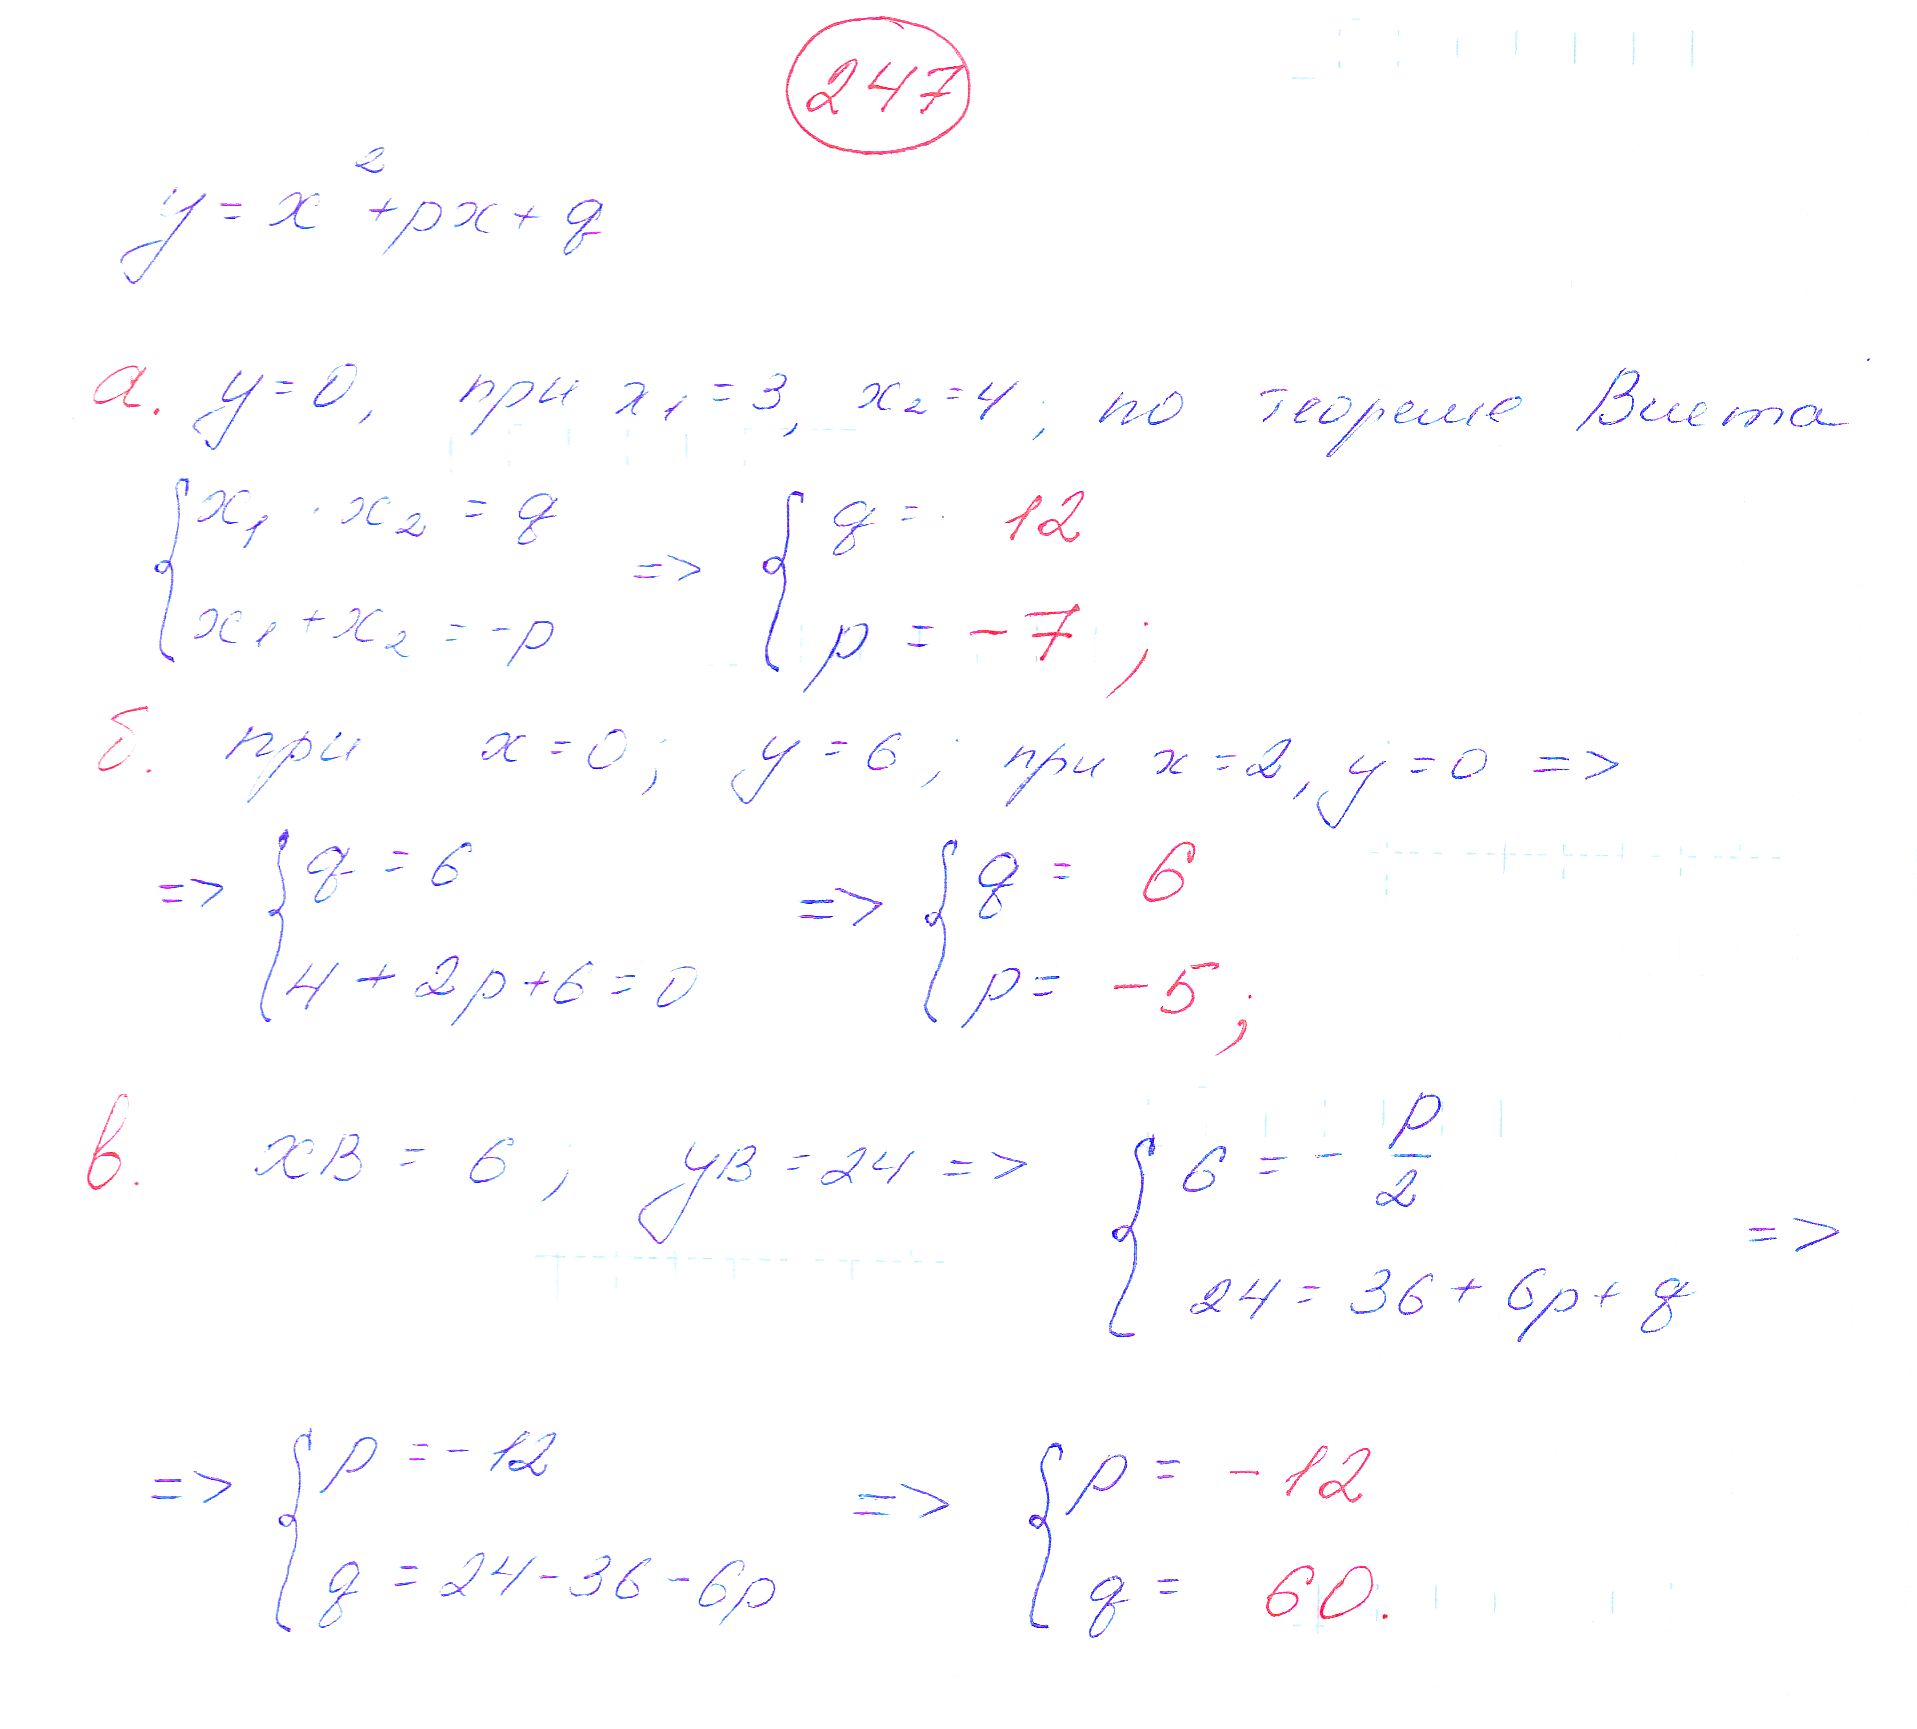 247
y = x² + px + q
а. y = 0, при x₁ = 3, x₂ = 4; по теореме Виета
{ x₁ · x₂ = q => { q = 12
x₁ + x₂ = -p p = -7;
б. при x = 0; y = 6; при x = 2, y = 0 =>
=> { q = 6 => { q = 6
4 + 2p + 6 = 0 p = -5;
в. xв = 6; yв = 24 => { 6 = - p/2
24 = 36 + 6p + q =>
=> { p = -12 => { p = -12
q = 24 - 36 - 6p q = 60.